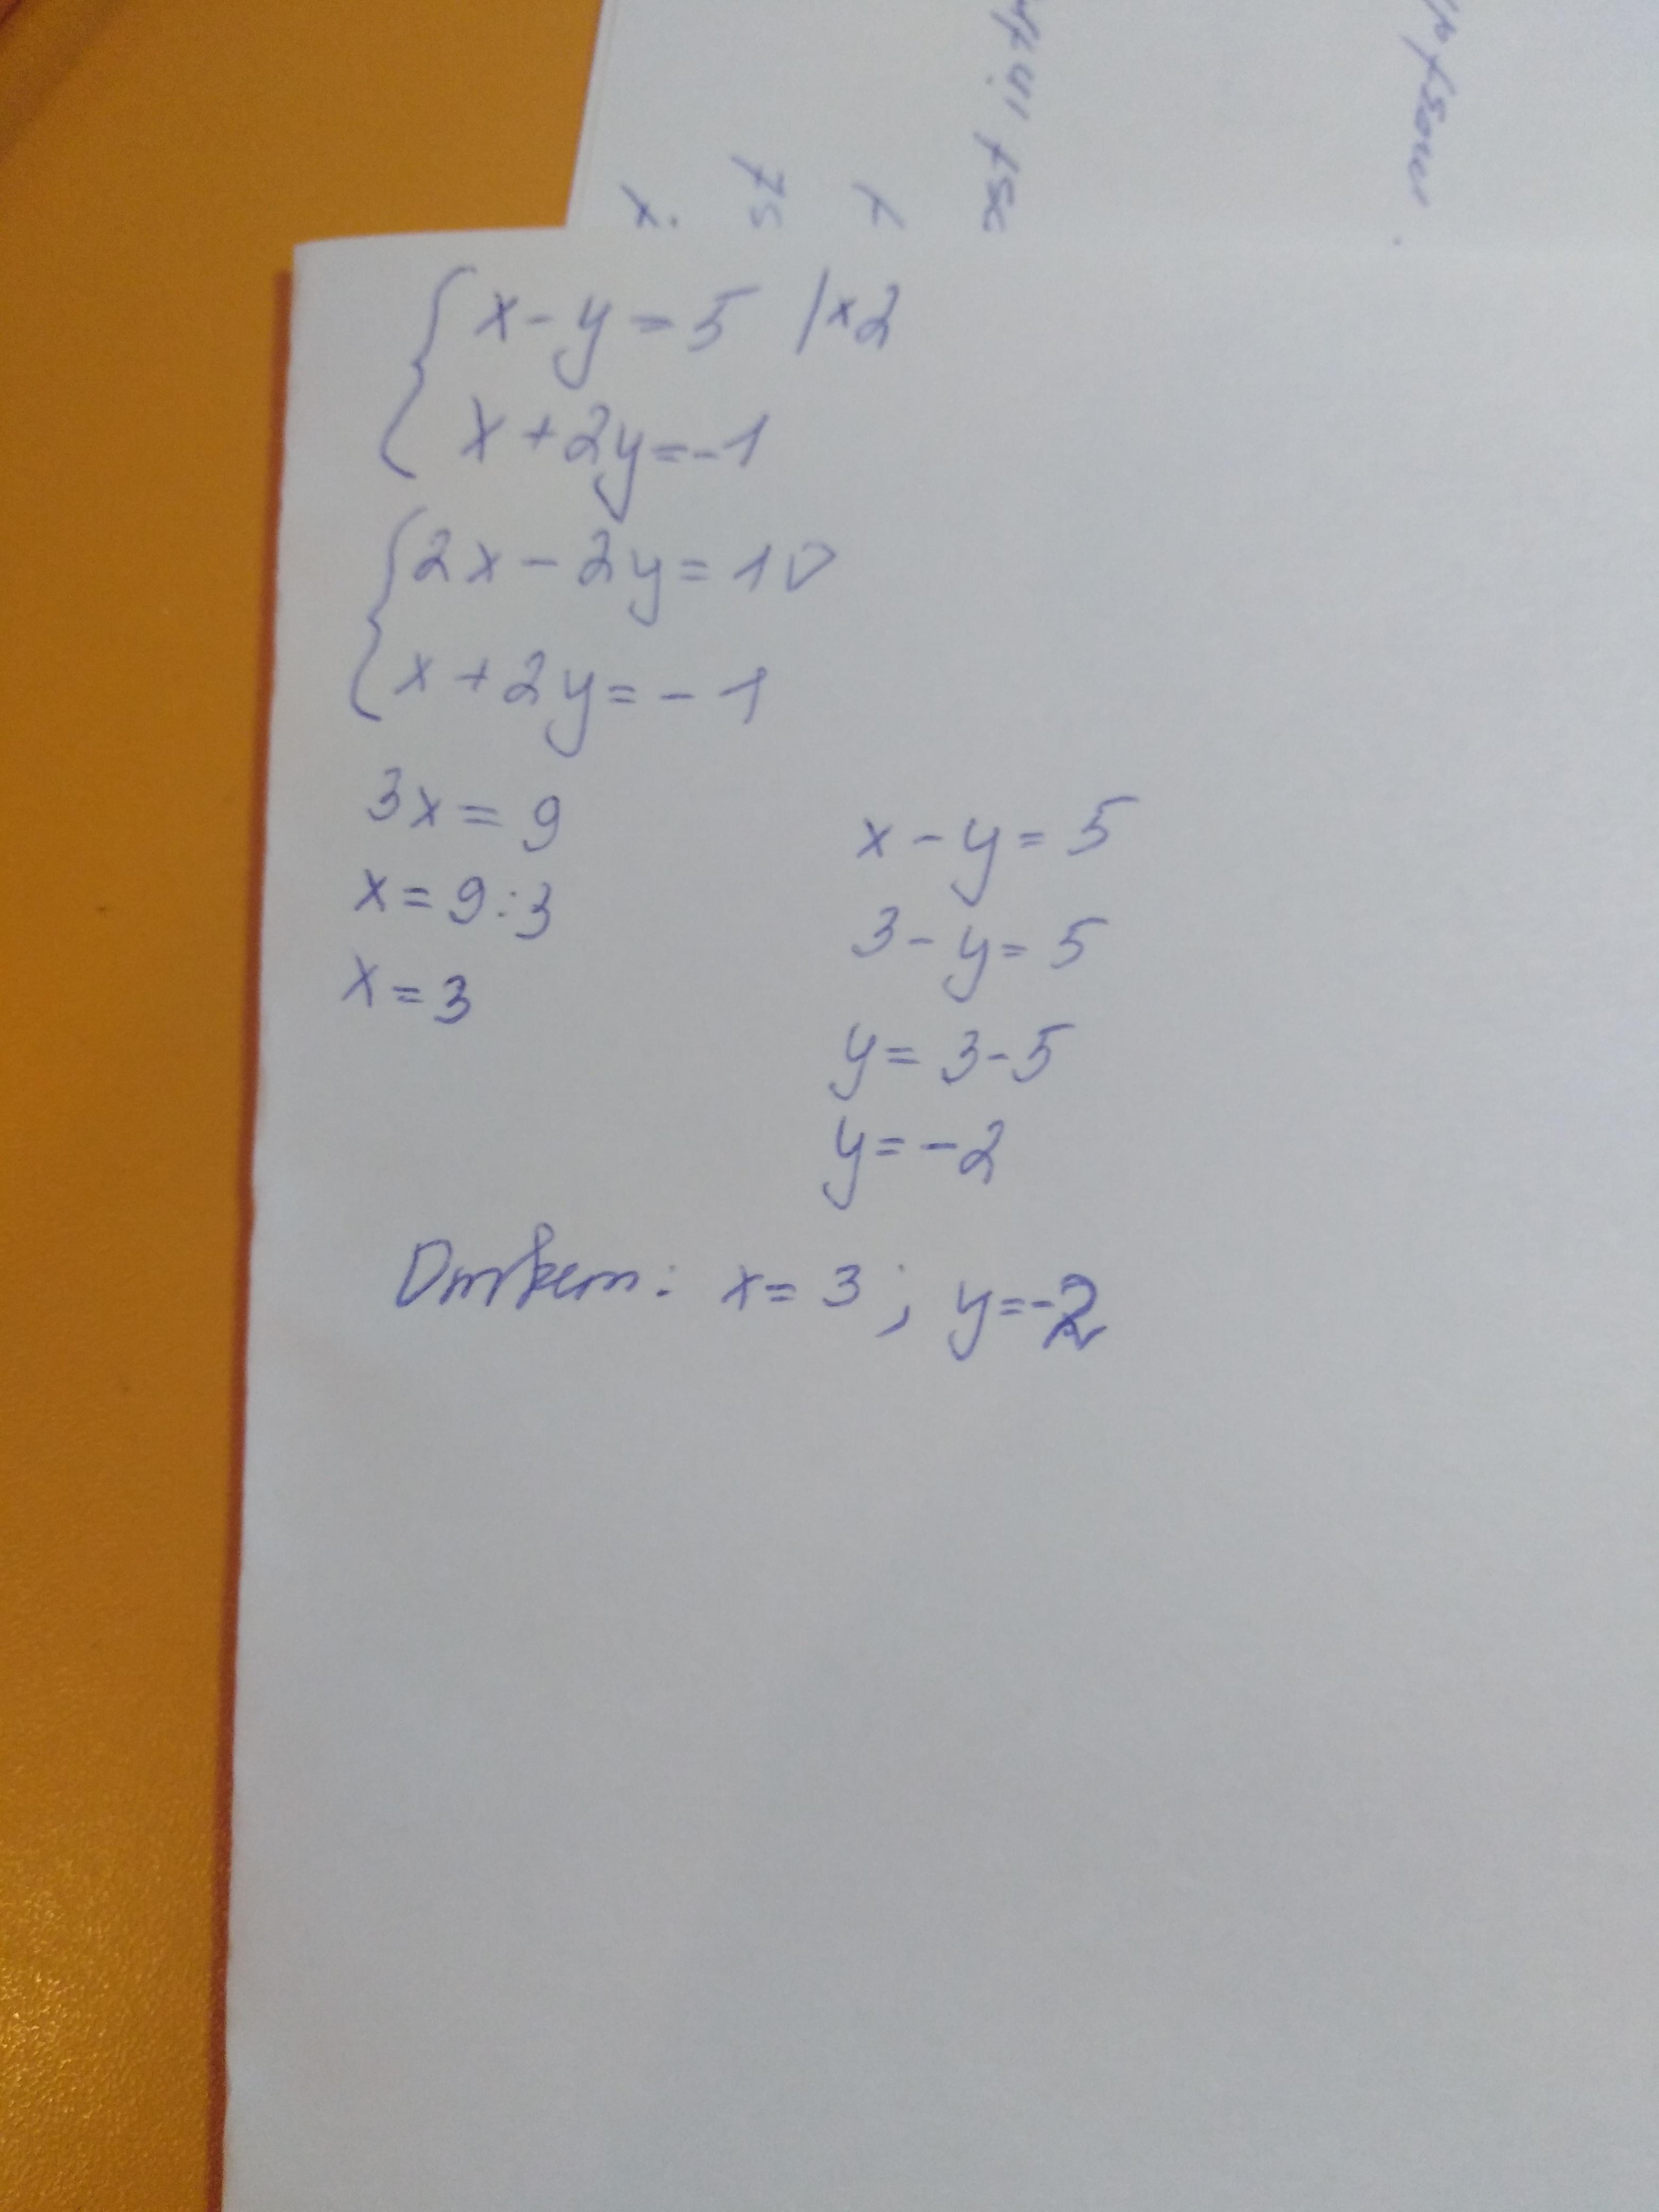 x - y = 5 /×2
x + 2y = -1
2x - 2y = 10
x + 2y = -1
3x = 9
x = 9:3
x = 3
x - y = 5
3 - y = 5
y = 3-5
y = -2
Ответ: x = 3; y = -2